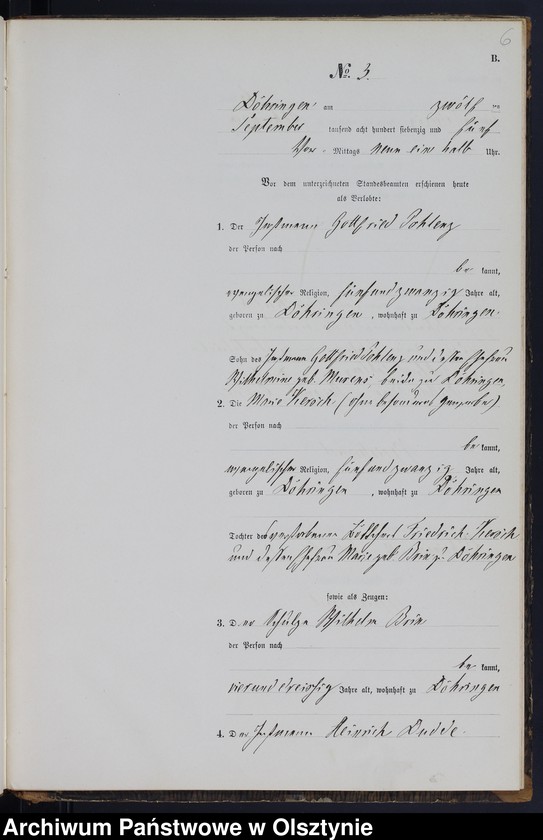 6
B.
No. 3.
Döhringen am zwölf ten
September tausend acht hundert siebenzig und fünf
Vor - Mittags neun ein halb Uhr.
Vor dem unterzeichneten Standesbeamten erschienen heute
als Verlobte:
1. Der Instmann Gottfried Pohlenz
der Person nach
be kannt,
evangelischer Religion, fünfundzwanzig Jahre alt,
geboren zu Döhringen, wohnhaft zu Döhringen.
Sohn des Instmann Gottfried Pohlenz und dessen Ehefrau
Wilhelmine geb. beide zu Döhringen,
2. Die Marie (ohne besonderes Gewerbe)
der Person nach
be kannt,
evangelischer Religion, fünfundzwanzig Jahre alt,
geboren zu Döhringen, wohnhaft zu Döhringen
Tochter des verstorbenen Friedrich
und dessen Ehefrau Marie geb. Brin zu Döhringen
sowie als Zeugen:
3. Der Schulze Wilhelm Brin
der Person nach
be kannt,
vierunddreissig Jahre alt, wohnhaft zu Döhringen
4. Der Instmann Heinrich Dudde.
Archiwum Państwowe w Olsztynie